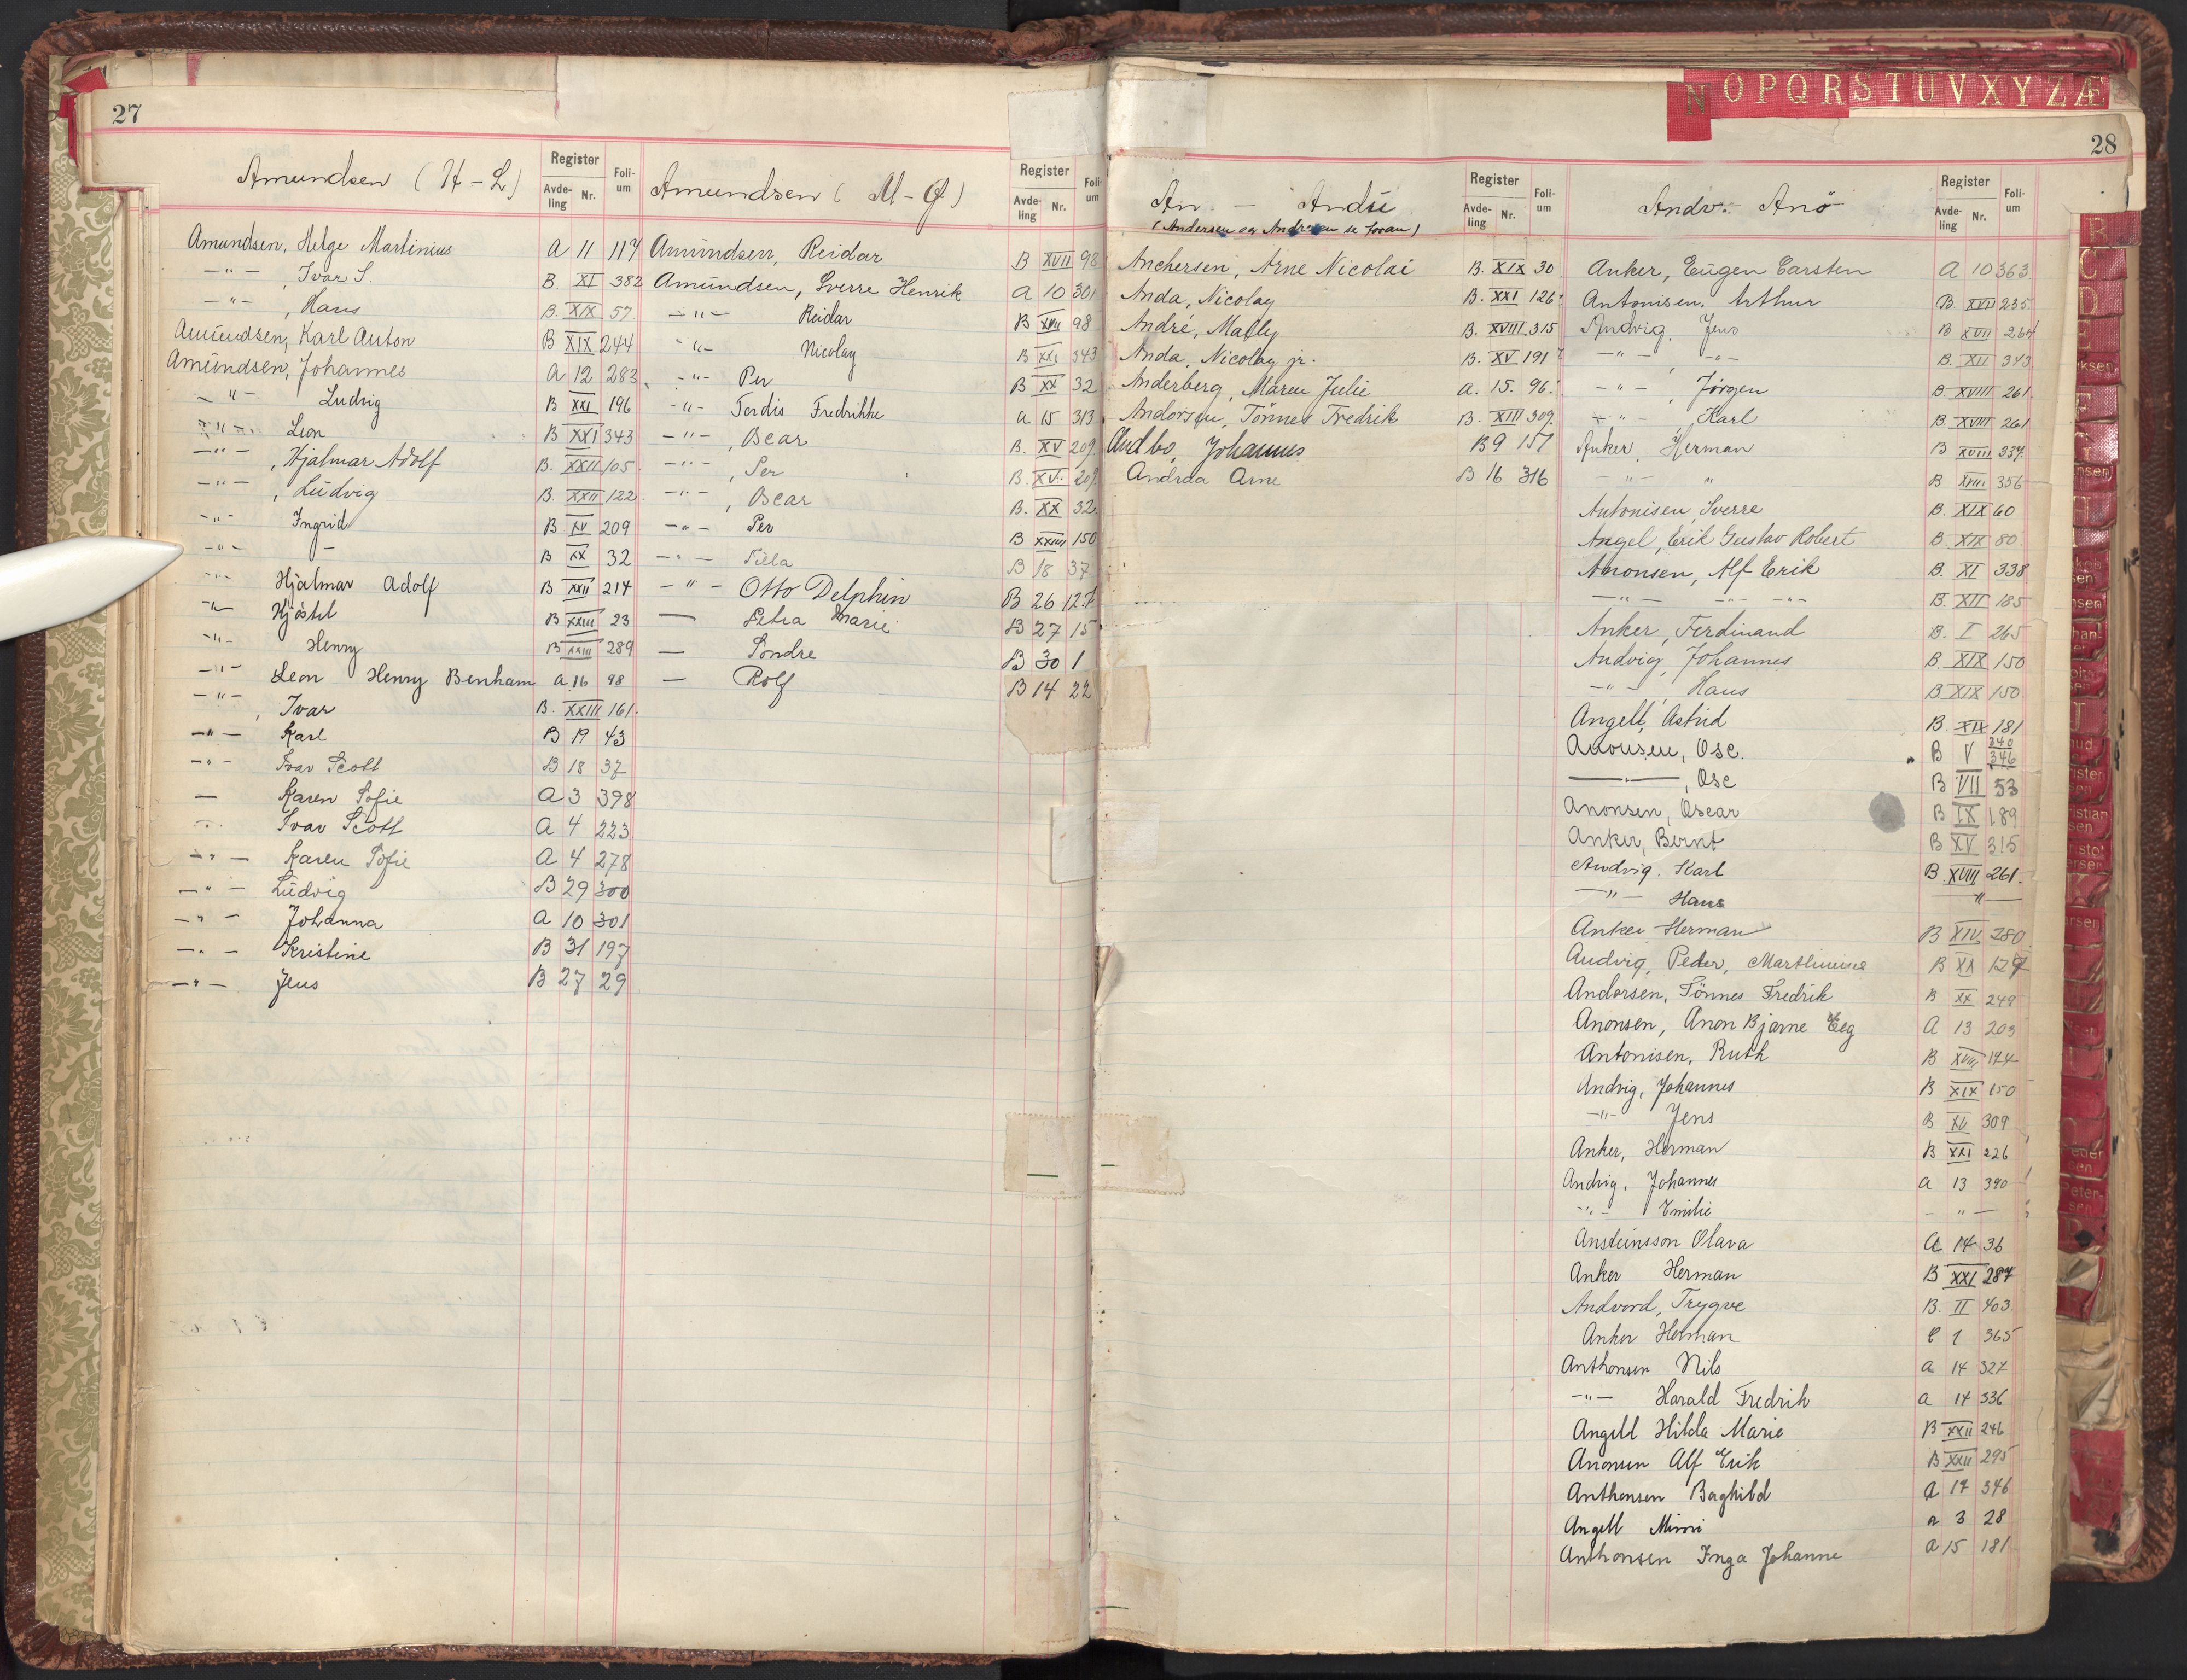 27
Amundsen (H - L)
Register
Avde-ling Nr. Foli-um
Amundsen, Helge Martinius A 11 117
-"- , Ivar S. B XI 382
-"- , Hans B. XIX 57
Amundsen, Karl Anton B XIX 244
Amundsen, Johannes A 12 283
-"- Ludvig B XXI 196
-"- Leon B XXI 343
-"- , Hjalmar Adolf B. XXII 105
-"- , Ludvig B. XXII 122
-"- Ingrid B XV 209
-"- - B XX 32
-"- Hjalmar Adolf B XXII 214
-"- Hjøstel B XXIII 23
-"- Henry B XXIII 289
-"- Leon Henry Benham A 16 98
-"- , Ivar B. XXIII 161
-"- Karl B 19 43
-"- Ivar Scott B 18 37
— Karen Sofie A 3 398
-"- Ivar Scott A 4 223
-"- Karen Sofie A 4 278
-"- Ludvig B 29 300
-"- Johanna A 10 301
-"- Kristine B 31 197
-"- Jens B 27 29
Amundsen ( M - Ø)
Register
Avde-ling Nr. Foli-um
Amundsen, Reidar B XVII 98
Amundsen, Sverre Henrik A 10 301
-"- Reidar B XVII 98
-"- Nicolay B XXI 343
-"- Per B XX 32
-"- Tordis Fredrikke A 15 313
-"- , Oscar B. XV 209
-"- , Per B. XV. 209
-"- , Oscar B. XX 32
-"- Per B XXIII 150
-"- Tilla B 18 37
-"- Otto Delphin B 26 127
— Petra Marie B 27 15
— Sondre B 30 1
— Rolf B 14 22
N O P Q R S T U V X Y Z Æ
28
An. - André
(Andersen og Andresen se foran)
Register
Avde-ling Nr. Foli-um
Anchersen, Arne Nicolai B. XIX 30
Anda, Nicolay B. XXI 126
André, Mally B. XVIII 315
Anda, Nicolay jr. B. XV 191
Anderberg, Maren Julie A. 15. 96
Andorsen, Tönnes Fredrik B. XIII 309
Andbo, Johannes B 9 157
Andrda Arne B 16 316
Andv. - Anö
Register
Avde-ling Nr. Foli-um
Anker, Eugen Carsten A 10 363
Antonisen, Arthur B. XVII 235
Andvig, Jens B XVII 264
-"- , -"- B. XII 343
-"- , Jørgen B XVIII 261
-"- , Karl B. XVIII 261
Anker, Herman B XVIII 337
-"- " B XVIII 356
Antonisen, Sverre B. XIX 60
Angel, Erik Gustav Robert B. XIX 80
Anonsen, Alf Erik B. XI 338
-"- -"- -"- B. XII 185
Anker, Ferdinand B. I 265
Andvig, Johannes B. XIX 150
-"- , Hans B. XIX 150
Angell, Astrid B. XIX 181
Anonsen, Osc. B V 340 346
—"—, Osc B VII 53
Anonsen, Oscar B IX 189
Anker, Bernt B XV 315
Andvig. Karl B. XVIII 261.
-"- Hans —"—
Anker Herman B XIV 280
Andvig, Peder, Marthinius B XX 127
Andorsen, Tönnes Fredrik B XX 249
Anonsen, Anon Bjarne Eeg A 13 203
Antonisen, Ruth B XVIII 194
Andvig, Johannes B XIX 150
-"- Jens B XV 309
Anker, Herman B XXI 226
Andvig, Johannes A 13 390
-"- Emilie - " -
Ansteinsson Olava A 14 36
Anker Herman B XXI 287
Andvord, Trygve B. II 403
Anker Herman C 1 365
Anthonsen Nils A 14 327
-"- Harald Fredrik A 14 336
Angell Hilda Marie B XXII 246
Anonsen Alf Erik B XXII 295
Anthonsen Borghild A 14 346
Angell Mimi A 3 28
Anthonsen Inga Johanne A 15 181